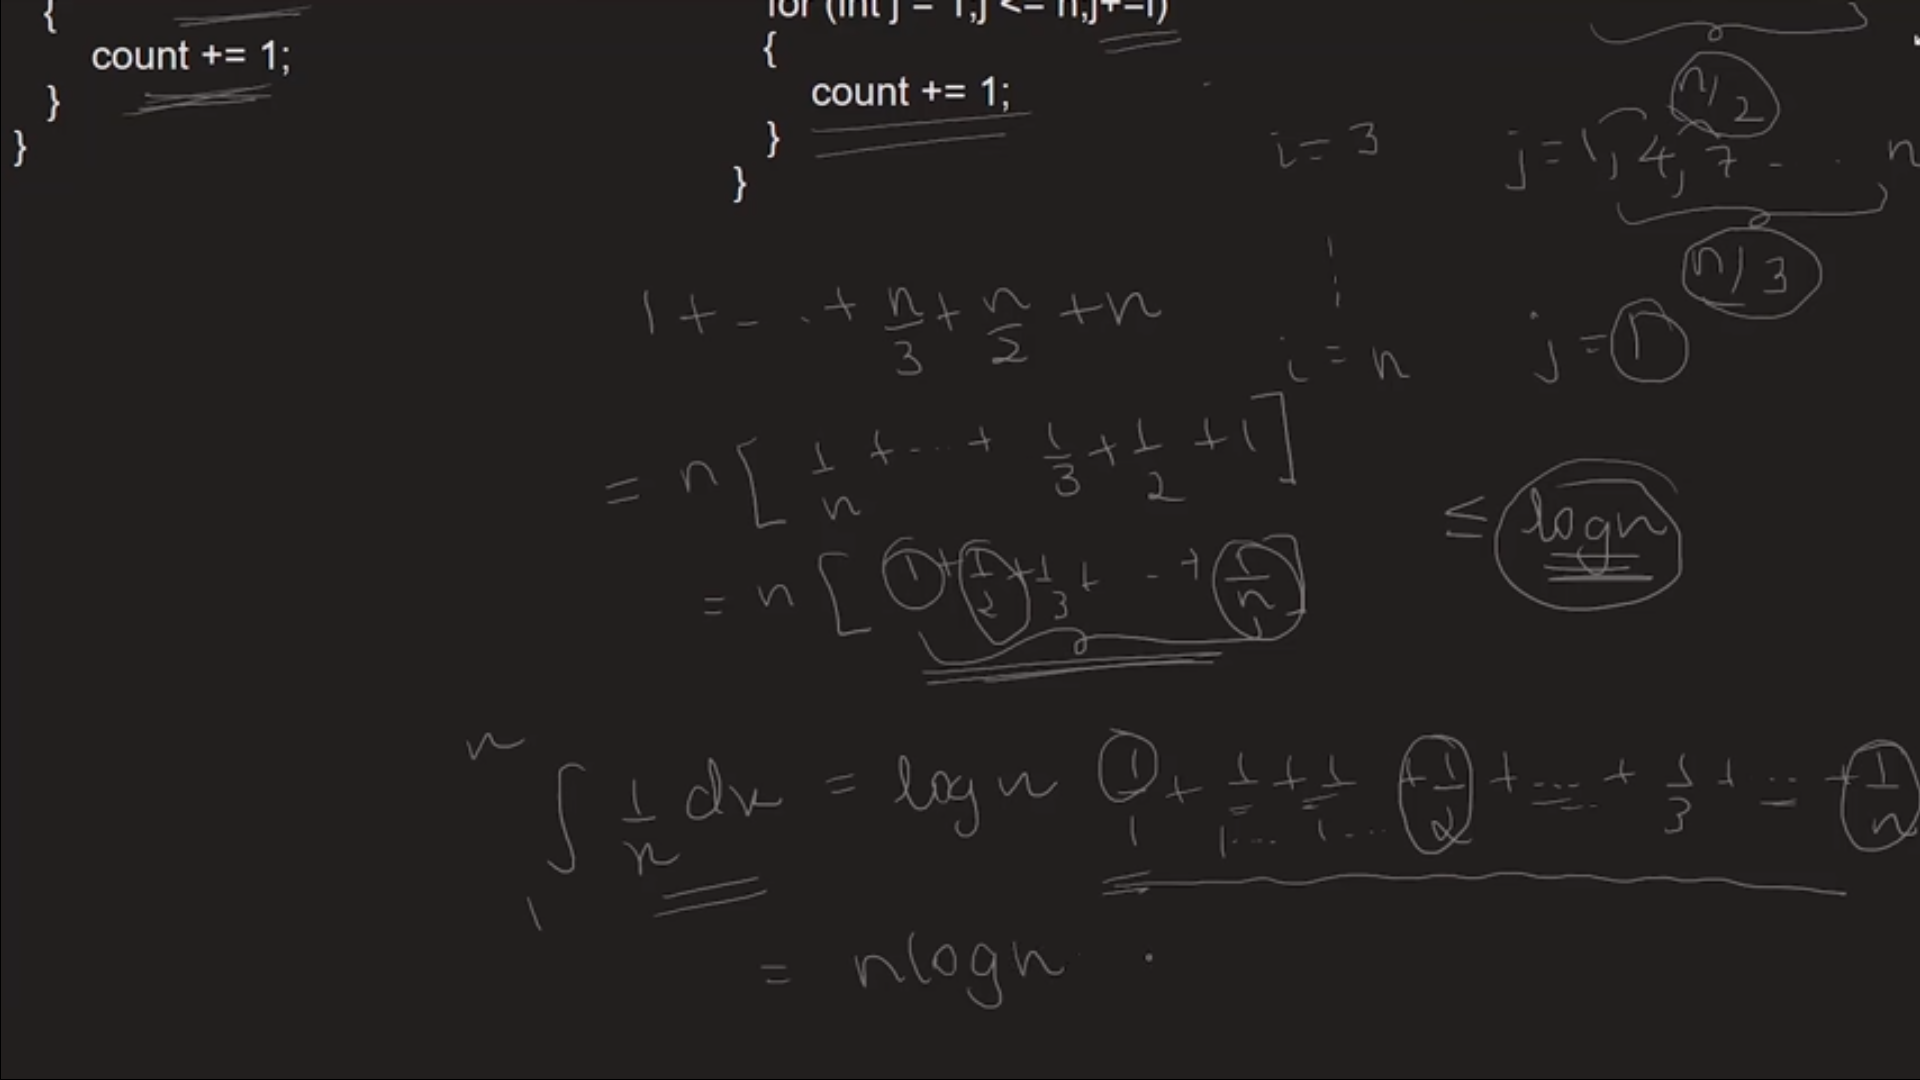 {
count += 1;
}
}
for (int j = 1;j <= n;j+=i)
{
count += 1;
}
}
n/2
i = 3 j = 1, 4, 7 - . . n
n/3
i = n j = 1
1 + - . . + n/3 + n/2 + n
= n [ 1/n + ... + 1/3 + 1/2 + 1 ]
= n [ 1 + 1/2 + 1/3 + - - + 1/n ]
≤ logn
∫ 1/x dx = log n
n
1
1/1 + 1/1... + 1/1... + 1/2 + ... + 1/3 + ... + 1/n
= nlogn .